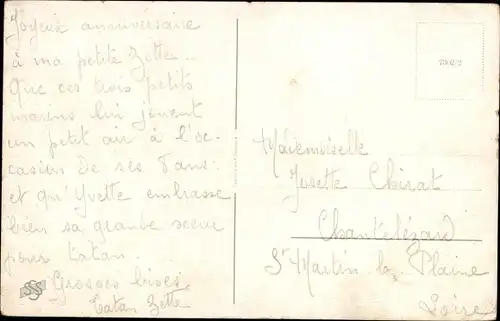 Joyeux anniversaire
à ma petite Zette..
Que ces trois petits
marins lui jouent
un petit air à l'oc-
casion de ses 7 ans.
et qu'Yvette embrasse
bien sa grande soeur
pour tatan.
Grosses bises
tatan Zette
Mademoiselle
Josette Chirat
Chantelézard
St Martin la Plaine
Loire